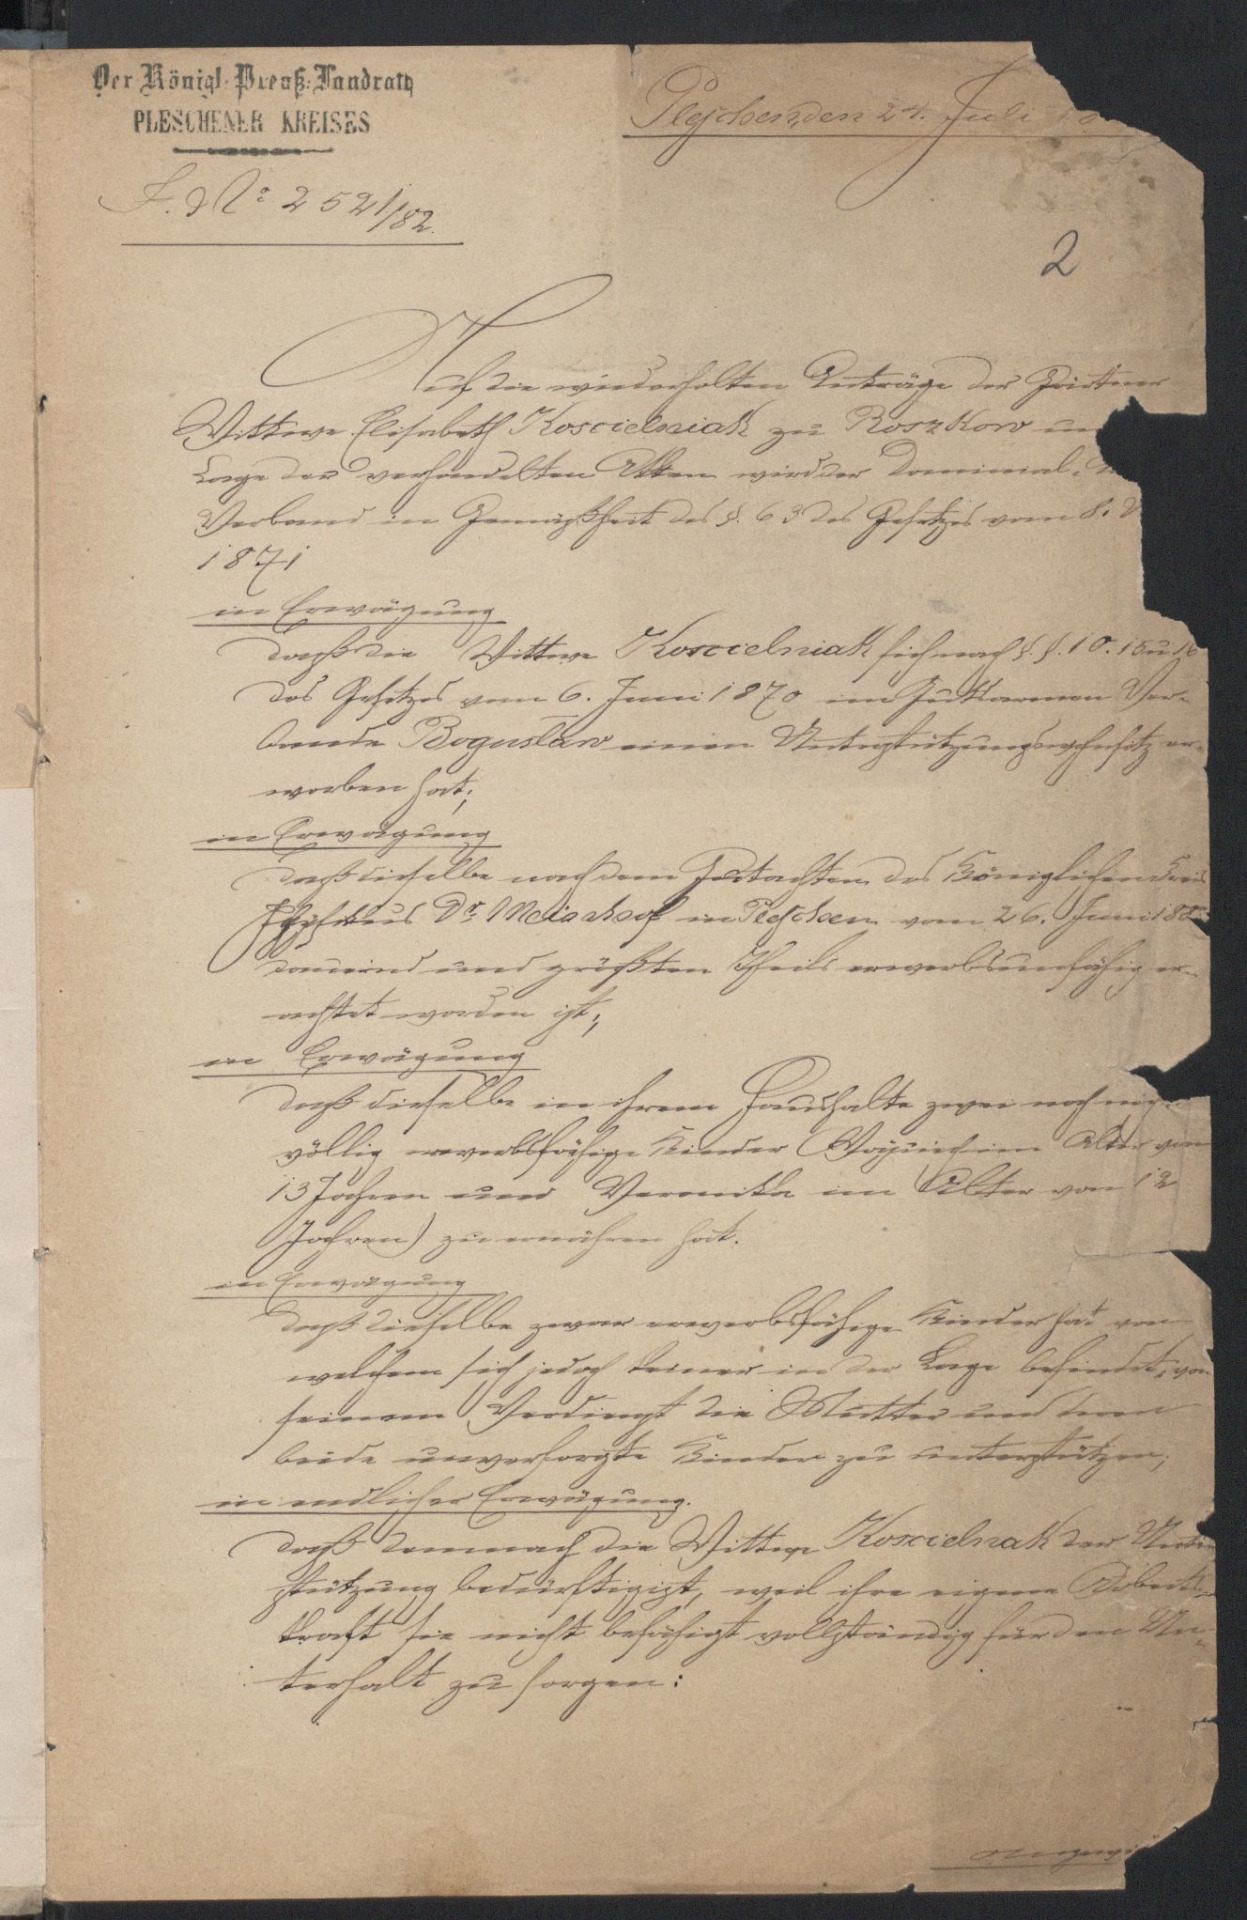 Der Königl. Preuß. Landrath
PLESCHENER KREISES
Pleschen, den 24. Juli
J. No 2521/82.
2
Auf die wiederholten Anträge der
Wittwe Elisabeth Koscielniak zu Roszkow
Lage der verhandelten Akten wird der Dominial-
Verband in Gemäßheit des §. 63 des Gesetzes vom 8.
1871
in Erwägung
daß die Wittwe Koscielniak sich nach §. §. 10. 15 u 16
des Gesetzes vom 6. Juni 1870 im Ver-
bande Boguslaw einen Unterstützungswohnsitz er-
worben hat;
in Erwägung
daß dieselbe nach dem Gutachten des Königlichen Kreis
Physikus Dr. in Pleschen vom 26. Juni 188
dauernd und größten Theils erwerbsunfähig er-
achtet worden ist;
in Erwägung
daß dieselbe in ihrem Haushalte zwei noch
völlig erwerbsfähige Kinder (im Alter von
13 Jahren und Veronika im Alter von 12
Jahren) zu ernähren hat.
in Erwägung
daß dieselbe zwar erwerbsfähige Kinder hat von
welchem sich jedoch keiner in der Lage befindet, von
seinem Verdienst die Mutter und deren
beide unversorgte Kinder zu unterstützen;
in endlicher Erwägung.
daß demnach die Wittwe Koscielniak der Unter
stützung bedürftig ist, weil ihre eigene Arbeits-
kraft sie nicht befähigt vollständig für den Un-
terhalt zu sorgen: